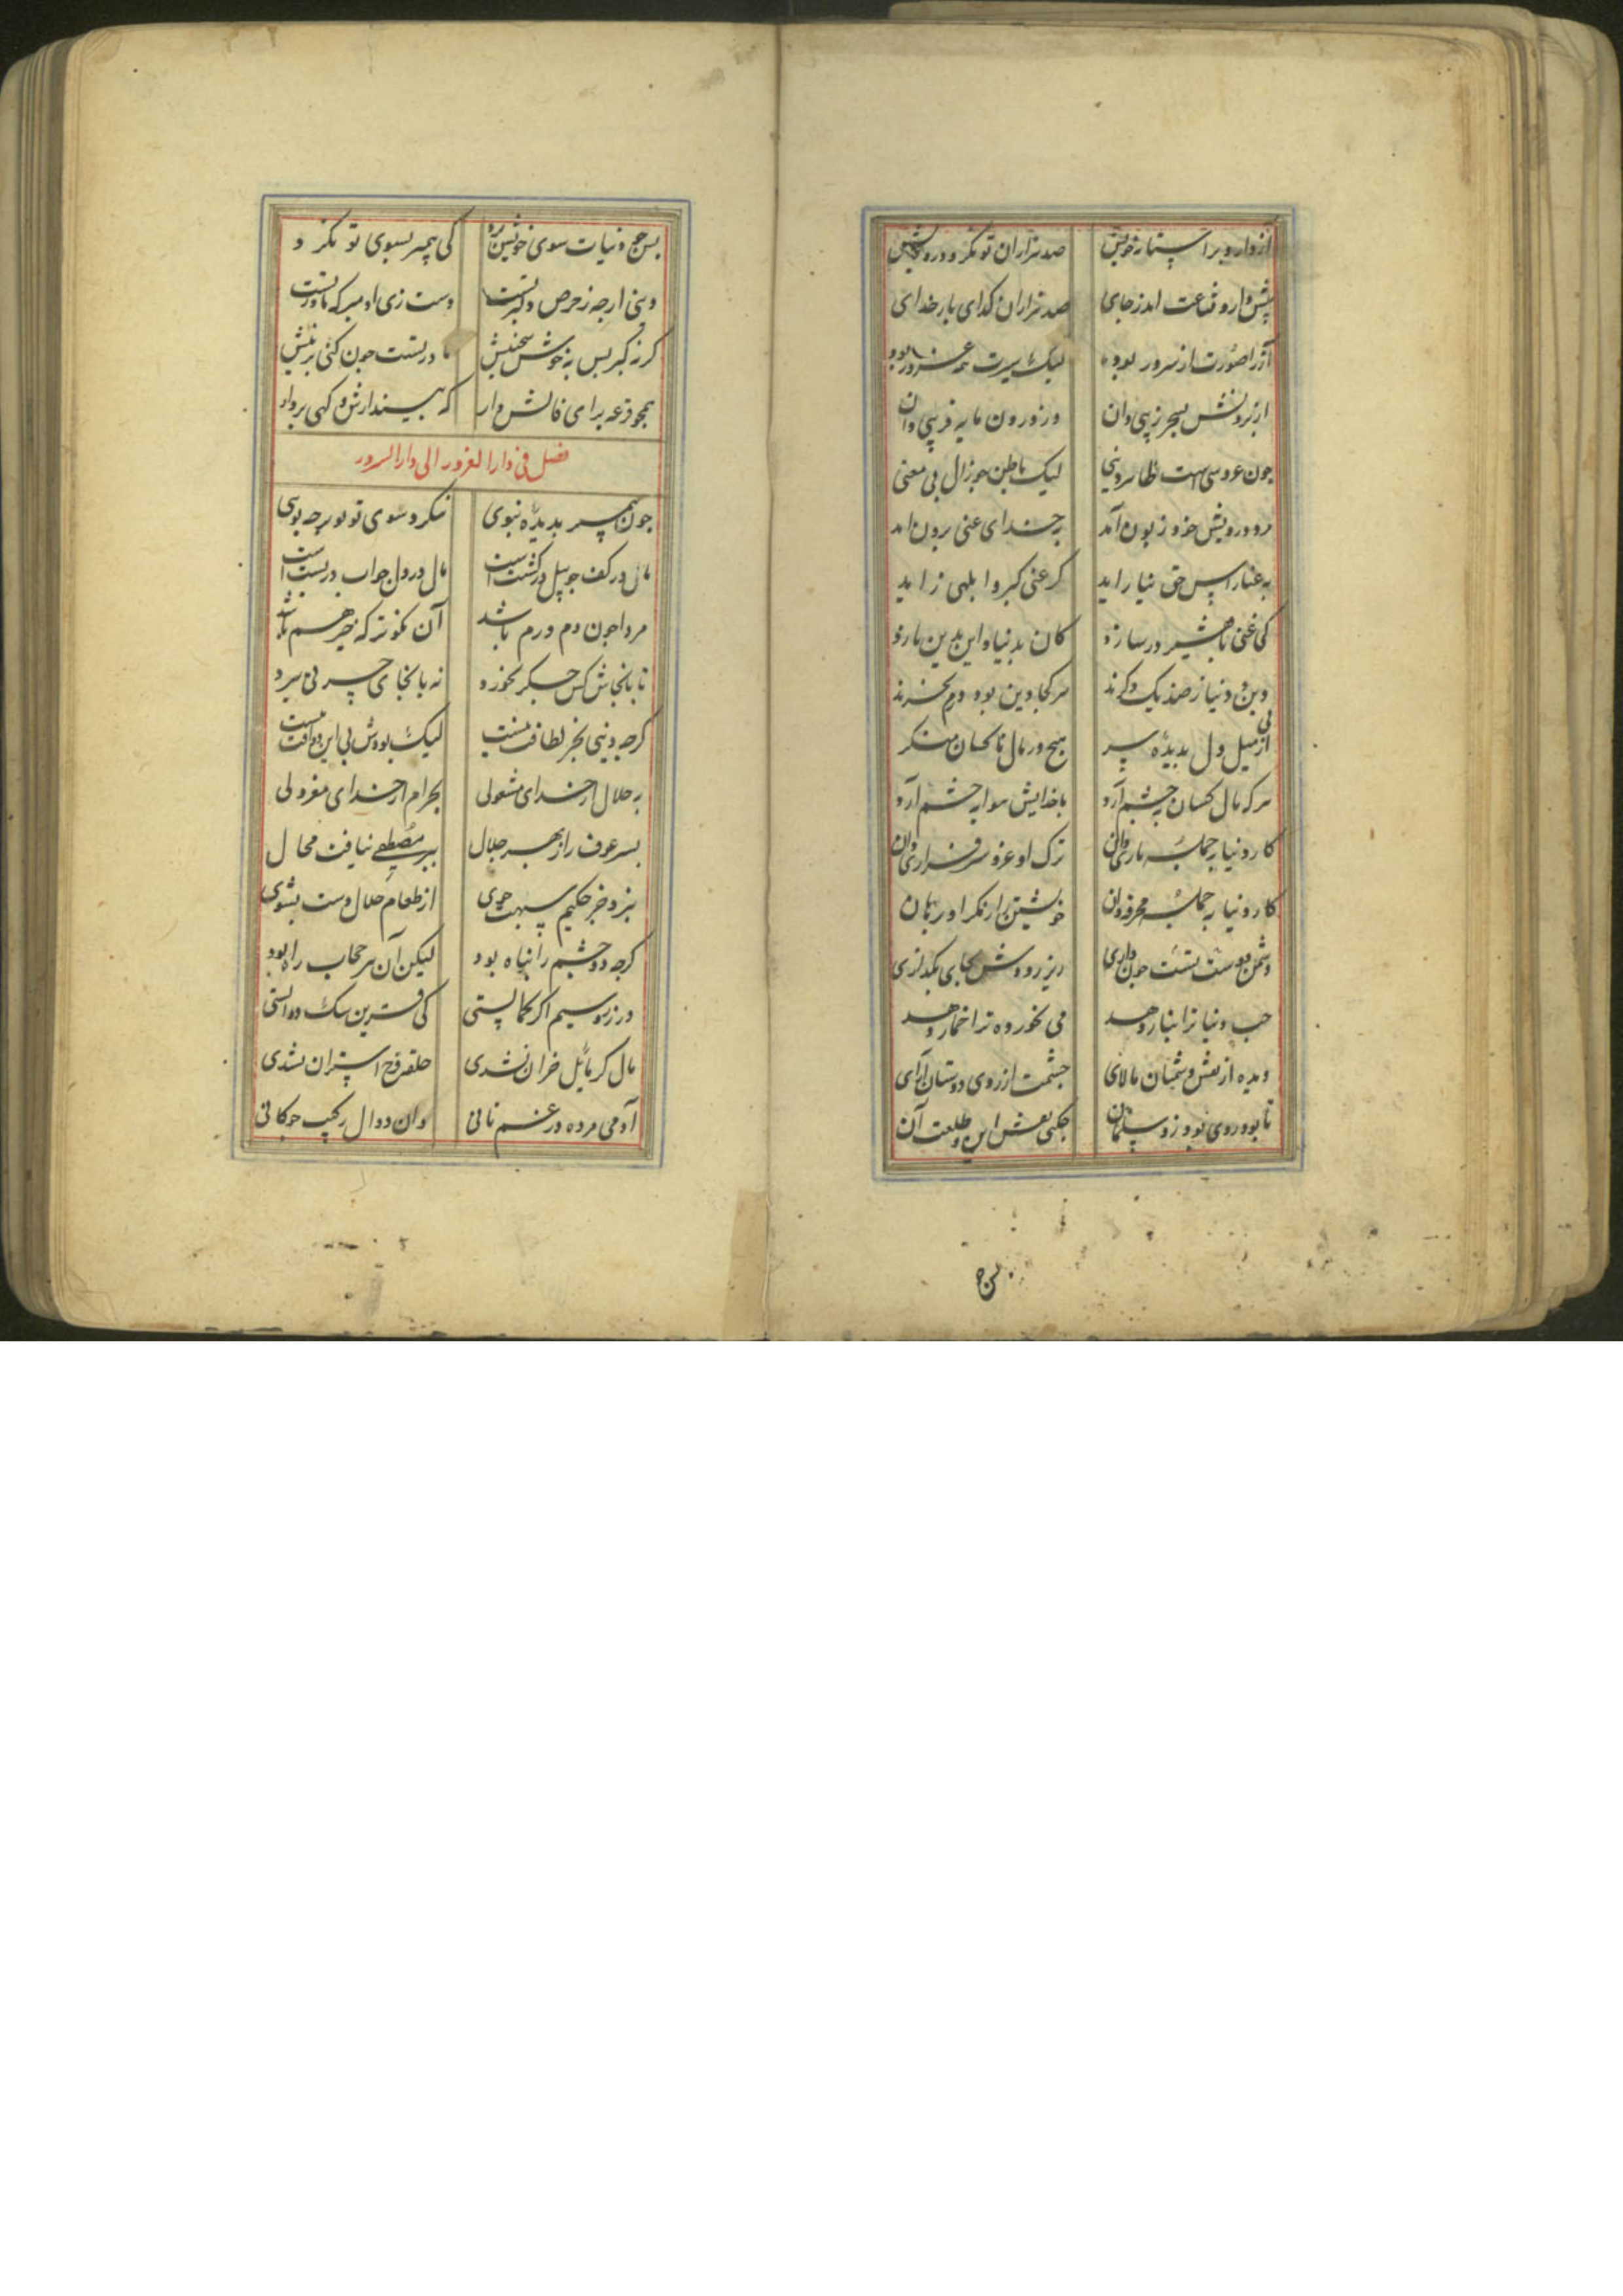 از دار و برا ستان خویش صد هزاران توانگر و درویش
پیش او رو قناعت اندر جای صد هزاران گدای بار خدای
آز را صورت از سرور بود لیک سیرت همه غرور بود
از برونش بسحر زیبی دان وز درون مایه فریبی دان
جون عروسی است ظاهر دنیی لیک باطن جو زال بی معنی
مرد درویش خود زبون آمد به خدای غنی برون آمد
به عنا راسپاس حق نیاراید کز غنی کبر و ابلهی زاید
کی غنی با فقیر در سازد کان بدنیا و این بدین یازد
دین و دنیا ز ضد یکدگرند هر کجا دین بود درم نخرند
از پی میل دل بدیده سر هیچ در مال ناکسان منگر
هر که مال کسان به چشم آرد با خدایش هوا به خشم آرد
کار دنیا به جمله بازی دان ترک او عز و سرفرازی دان
کار دنیا به جمله مخرقه دان خویشتن را ز مکر او برهان
دشمن دوست تست جون داری ریز رو دوش جای بگذاری
حب دنیا ترا نیاز دهد می نخورده ترا خمار دهد
دیده از نقش دشمنان مالای جشمت از روی دوستان آرای
تا بود روی بوذر و سلمان جکنی نقش این و طلعت آن
بس ج دنیات سوی خویش برد کی پیمبر بسوی تو نگرد
دینی ارجه ز حرص دلبر تست دست زی او مبر که مادر تست
گر نه گبری پس به خوش سخنیش مادر تست جون کنی بزنیش
همجو قرعه برای فالش دار که بیندازش و گهی بردار
فصل فی دار الغرور الی دار السرور
جون پیمبر بدیده نبوی ننگرد سوی تو بهر چه بوی
مال در کف جو پیل در کشت است مال در دل جو آب در پست است
مرد را جون دم و درم باشد آن نکوتر که خیر هم باشد
تا بانجاش کس جگر نخورد نه بانجای چیز نی ببرد
گرجه دینی بجز لطافت نیست لیک بودش بی این دو آفت نیست
به حلال از خدای مشغولی بحرام از خدای معزولی
پسر عوف را ز بهر حلال بر مصطفی نیافت مجال
بنزد خبر حکیم سبهت جوی از طعام حلال دست بشوی
گرجه دو چشم را نباه بود لیکن آن سر حجاب راه بود
در زر و سیم اگر کمالستی کی قرین سگ دوالستی
مال گر مایل خران نشدی حلقه فرج استران نشدی
آدمی مرده در غم نانی وان دوال رکیب جوکانی
بس ج